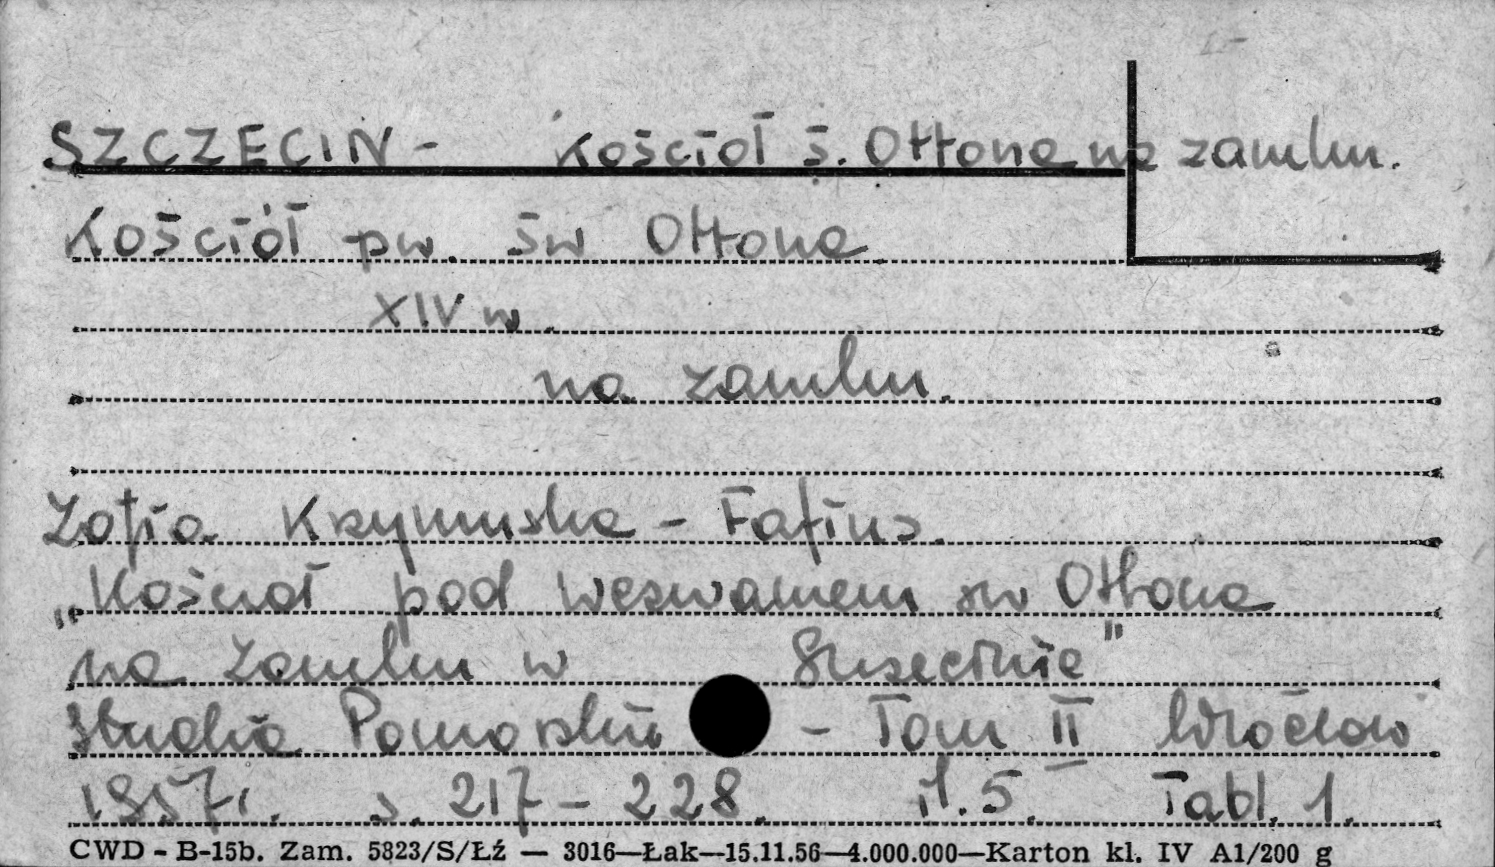 SZCZECIN - Kościół ś. Ottona na zamku.
Kościół pw. św Ottona
XIV w.
na zamku.
Zofia Krzymuska - Fafius.
„Kościół pod wezwaniem św Ottona
na zamku w Szczecinie"
Studia Pomorskie - Tom II Wrocław
1957 r. s. 217 - 228. il. 5. Tabl. 1.
CWD - B-15b. Zam. 5823/S/Łź — 3016—Łak—15.11.56—4.000.000—Karton kl. IV A1/200 g